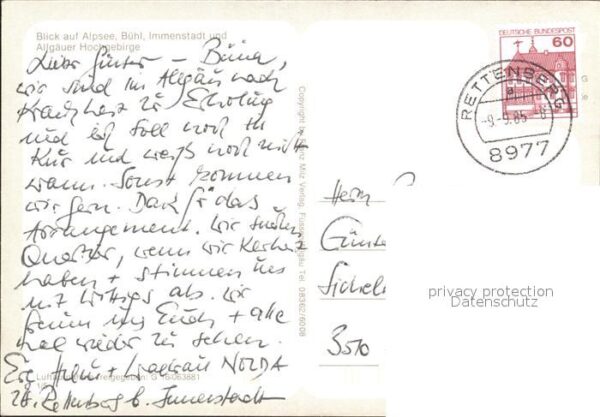 Blick auf Alpsee, Bühl, Immenstadt und
Allgäuer Hochgebirge
DEUTSCHE BUNDESPOST
60
RETTENBERG
a
-9.-9.85-8
8977
Lieber Günter – 
wir sind im Allgäu nach
Krankheit zur Erholung
und ich soll noch in
Kur und weiß noch nicht
wann. Sonst kommen
wir gern. Dank für das
Arrangement. Wir suchen
Quartier, wenn wir Klarheit
haben + stimmen uns
mit ab. Wir
freuen uns Euch + alle
mal wieder zu sehen.
Eure + NOLDA
Rettenberg b. Immenstadt
Copyright by Heinz Milz Verlag, Füssen Allgäu Tel. 08362/6008
Herrn
Günte
Sichel
3510
privacy protection
Datenschutz